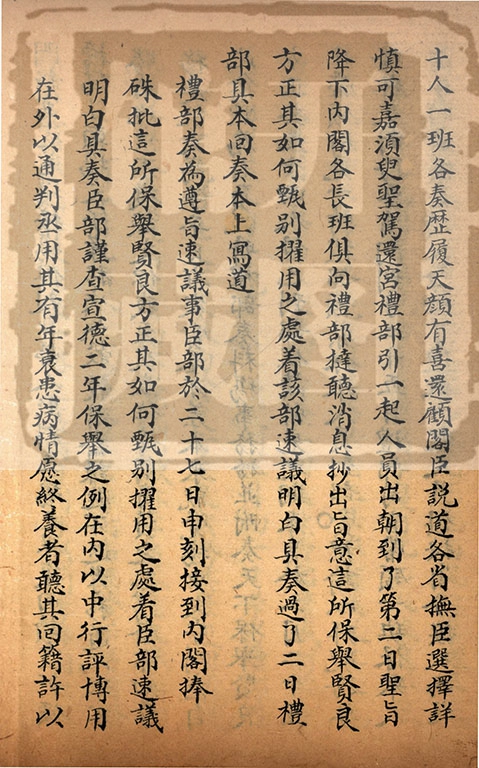 十人一班各奏歷履天顔有喜還顧閣臣説道各省撫臣選擇詳
慎可嘉湏臾聖駕還宮禮部引一起人員出朝到了第二日聖旨
降下內閣各長班俱向禮部撻聽消息抄出旨意這所保舉賢良
方正其如何甄别擢用之處着該部速議明白具奏過了二日禮
部具本回奏本上寫道
禮部奏為遵旨速議事臣部於二十七日申刻接到內閣捧
硃批這所保舉賢良方正其如何甄别擢用之處着臣部速議
明白具奏臣部謹查宣德二年保舉之例在內以中行評博用
在外以通判丞用其有年衰患病情愿終養者聽其回籍許以